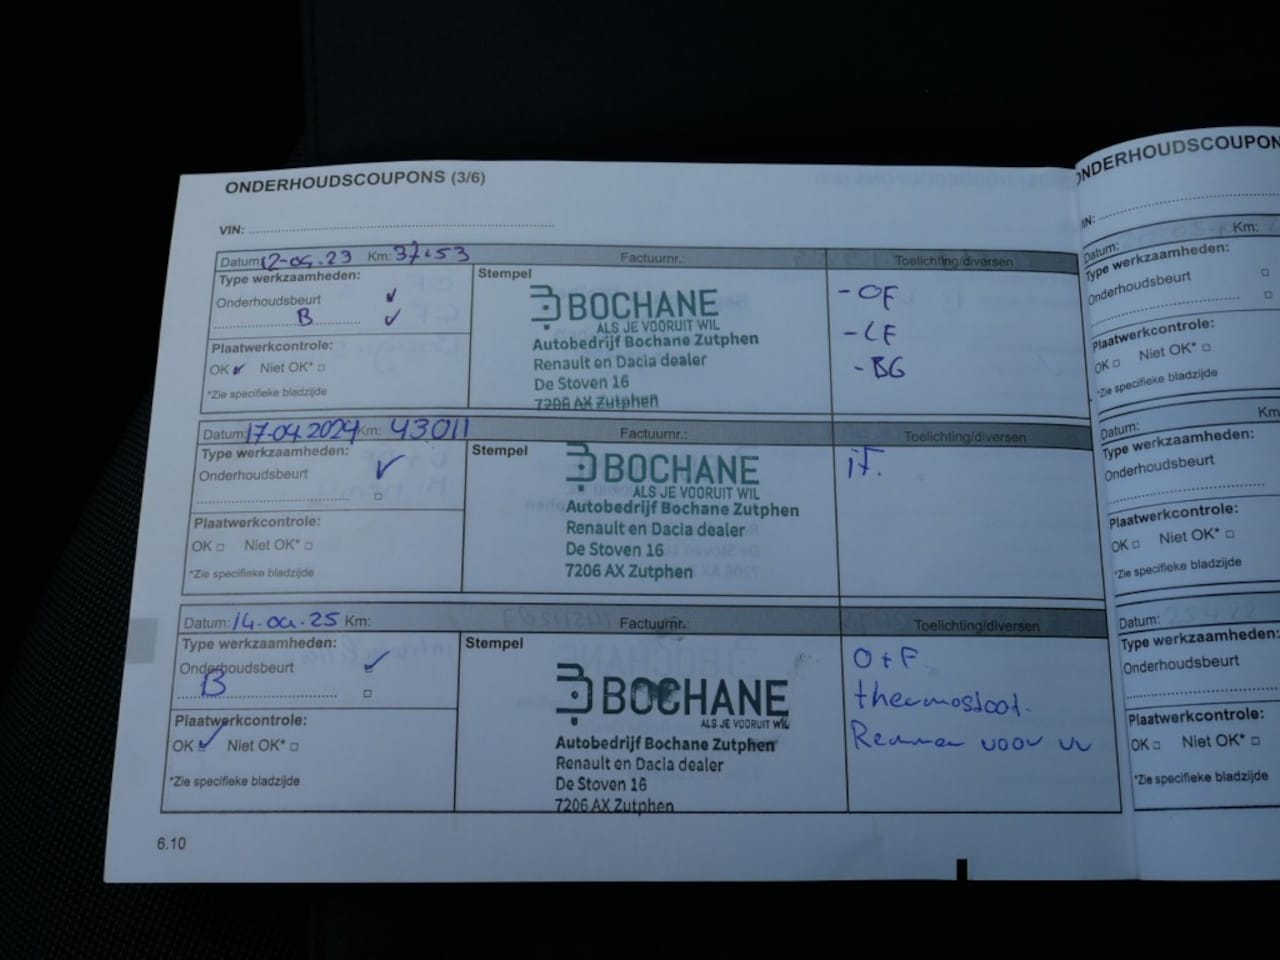 ONDERHOUDSCOUPONS (3/6)
VIN:
Datum: 12-04.23 Km: 37453 Factuurnr.: Toelichting/diversen
Type werkzaamheden:
Onderhoudsbeurt
B
Plaatwerkcontrole:
OK Niet OK*
*Zie specifieke bladzijde
Stempel
BOCHANE
ALS JE VOORUIT WIL
Autobedrijf Bochane Zutphen
Renault en Dacia dealer
De Stoven 16
7206 AX Zutphen
-OF
-CF
-BG
Datum: 17-04 2024 Km: 43011 Factuurnr.: Toelichting/diversen
Type werkzaamheden:
Onderhoudsbeurt
Plaatwerkcontrole:
OK Niet OK*
*Zie specifieke bladzijde
Stempel
BOCHANE
ALS JE VOORUIT WIL
Autobedrijf Bochane Zutphen
Renault en Dacia dealer
De Stoven 16
7206 AX Zutphen
iF.
Datum: 14-04.25 Km: Factuurnr.: Toelichting/diversen
Type werkzaamheden:
Onderhoudsbeurt
B
Plaatwerkcontrole:
OK Niet OK*
*Zie specifieke bladzijde
Stempel
BOCHANE
ALS JE VOORUIT WIL
Autobedrijf Bochane Zutphen
Renault en Dacia dealer
De Stoven 16
7206 AX Zutphen
O+F
thermostaat.
Remmen voor
6.10
ONDERHOUDSCOUPON
Datum: Km:
Type werkzaamheden:
Onderhoudsbeurt
Plaatwerkcontrole:
OK Niet OK*
*Zie specifieke bladzijde
Datum: Km
Type werkzaamheden:
Onderhoudsbeurt
Plaatwerkcontrole:
OK Niet OK*
*Zie specifieke bladzijde
Datum:
Type werkzaamheden:
Onderhoudsbeurt
Plaatwerkcontrole:
OK Niet OK*
*Zie specifieke bladzijde